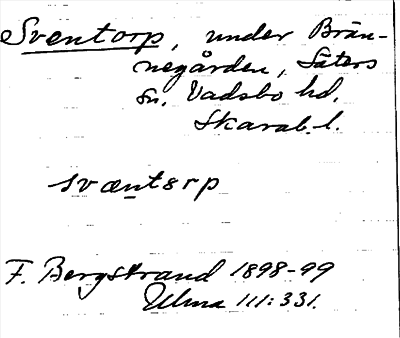 Sventorp, under Brän-
negården, Säters
sn. Vadsbo hd.
Skarab. l.
svæntɛrp
F. Bergstrand 1898-99
Ulma 111:331.